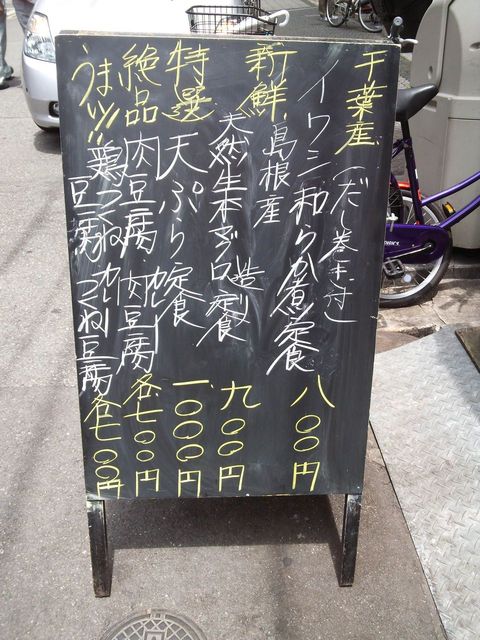 千葉産
イワシ和らか煮定食
(だし巻玉付)
八〇〇円
新鮮
島根産
天然生本マグロ造り定食
九〇〇円
特選
天ぷら定食
一、〇〇〇円
絶品
肉豆腐 カレー肉豆腐
各七〇〇円
うまいッ!!
鶏つくね豆腐 カレーつくね豆腐
各七〇〇円